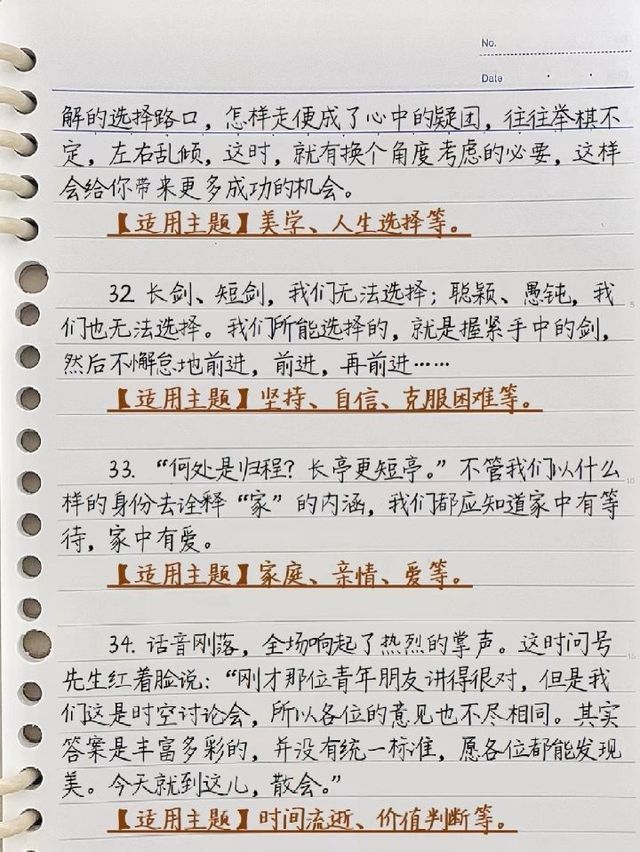 No.
Date
解的选择路口，怎样走便成了心中的疑团，往往举棋不
定，左右乱倾，这时，就有换个角度考虑的必要，这样
会给你带来更多成功的机会。
【适用主题】美学、人生选择等。
32 长剑、短剑，我们无法选择；聪颖、愚钝，我
们也无法选择。我们所能选择的，就是握紧手中的剑，
然后不懈怠地前进，前进，再前进……
【适用主题】坚持、自信、克服困难等。
33. “何处是归程？长亭更短亭。”不管我们以什么
样的身份去诠释“家”的内涵，我们都应知道家中有等
待，家中有爱。
【适用主题】家庭、亲情、爱等。
34. 话音刚落，全场响起了热烈的掌声。这时问号
先生红着脸说：“刚才那位青年朋友讲得很对，但是我
们这是时空讨论会，所以各位的意见也不尽相同。其实
答案是丰富多彩的，并没有统一标准，愿各位都能发现
美。今天就到这儿，散会。”
【适用主题】时间流逝、价值判断等。
5
10
15